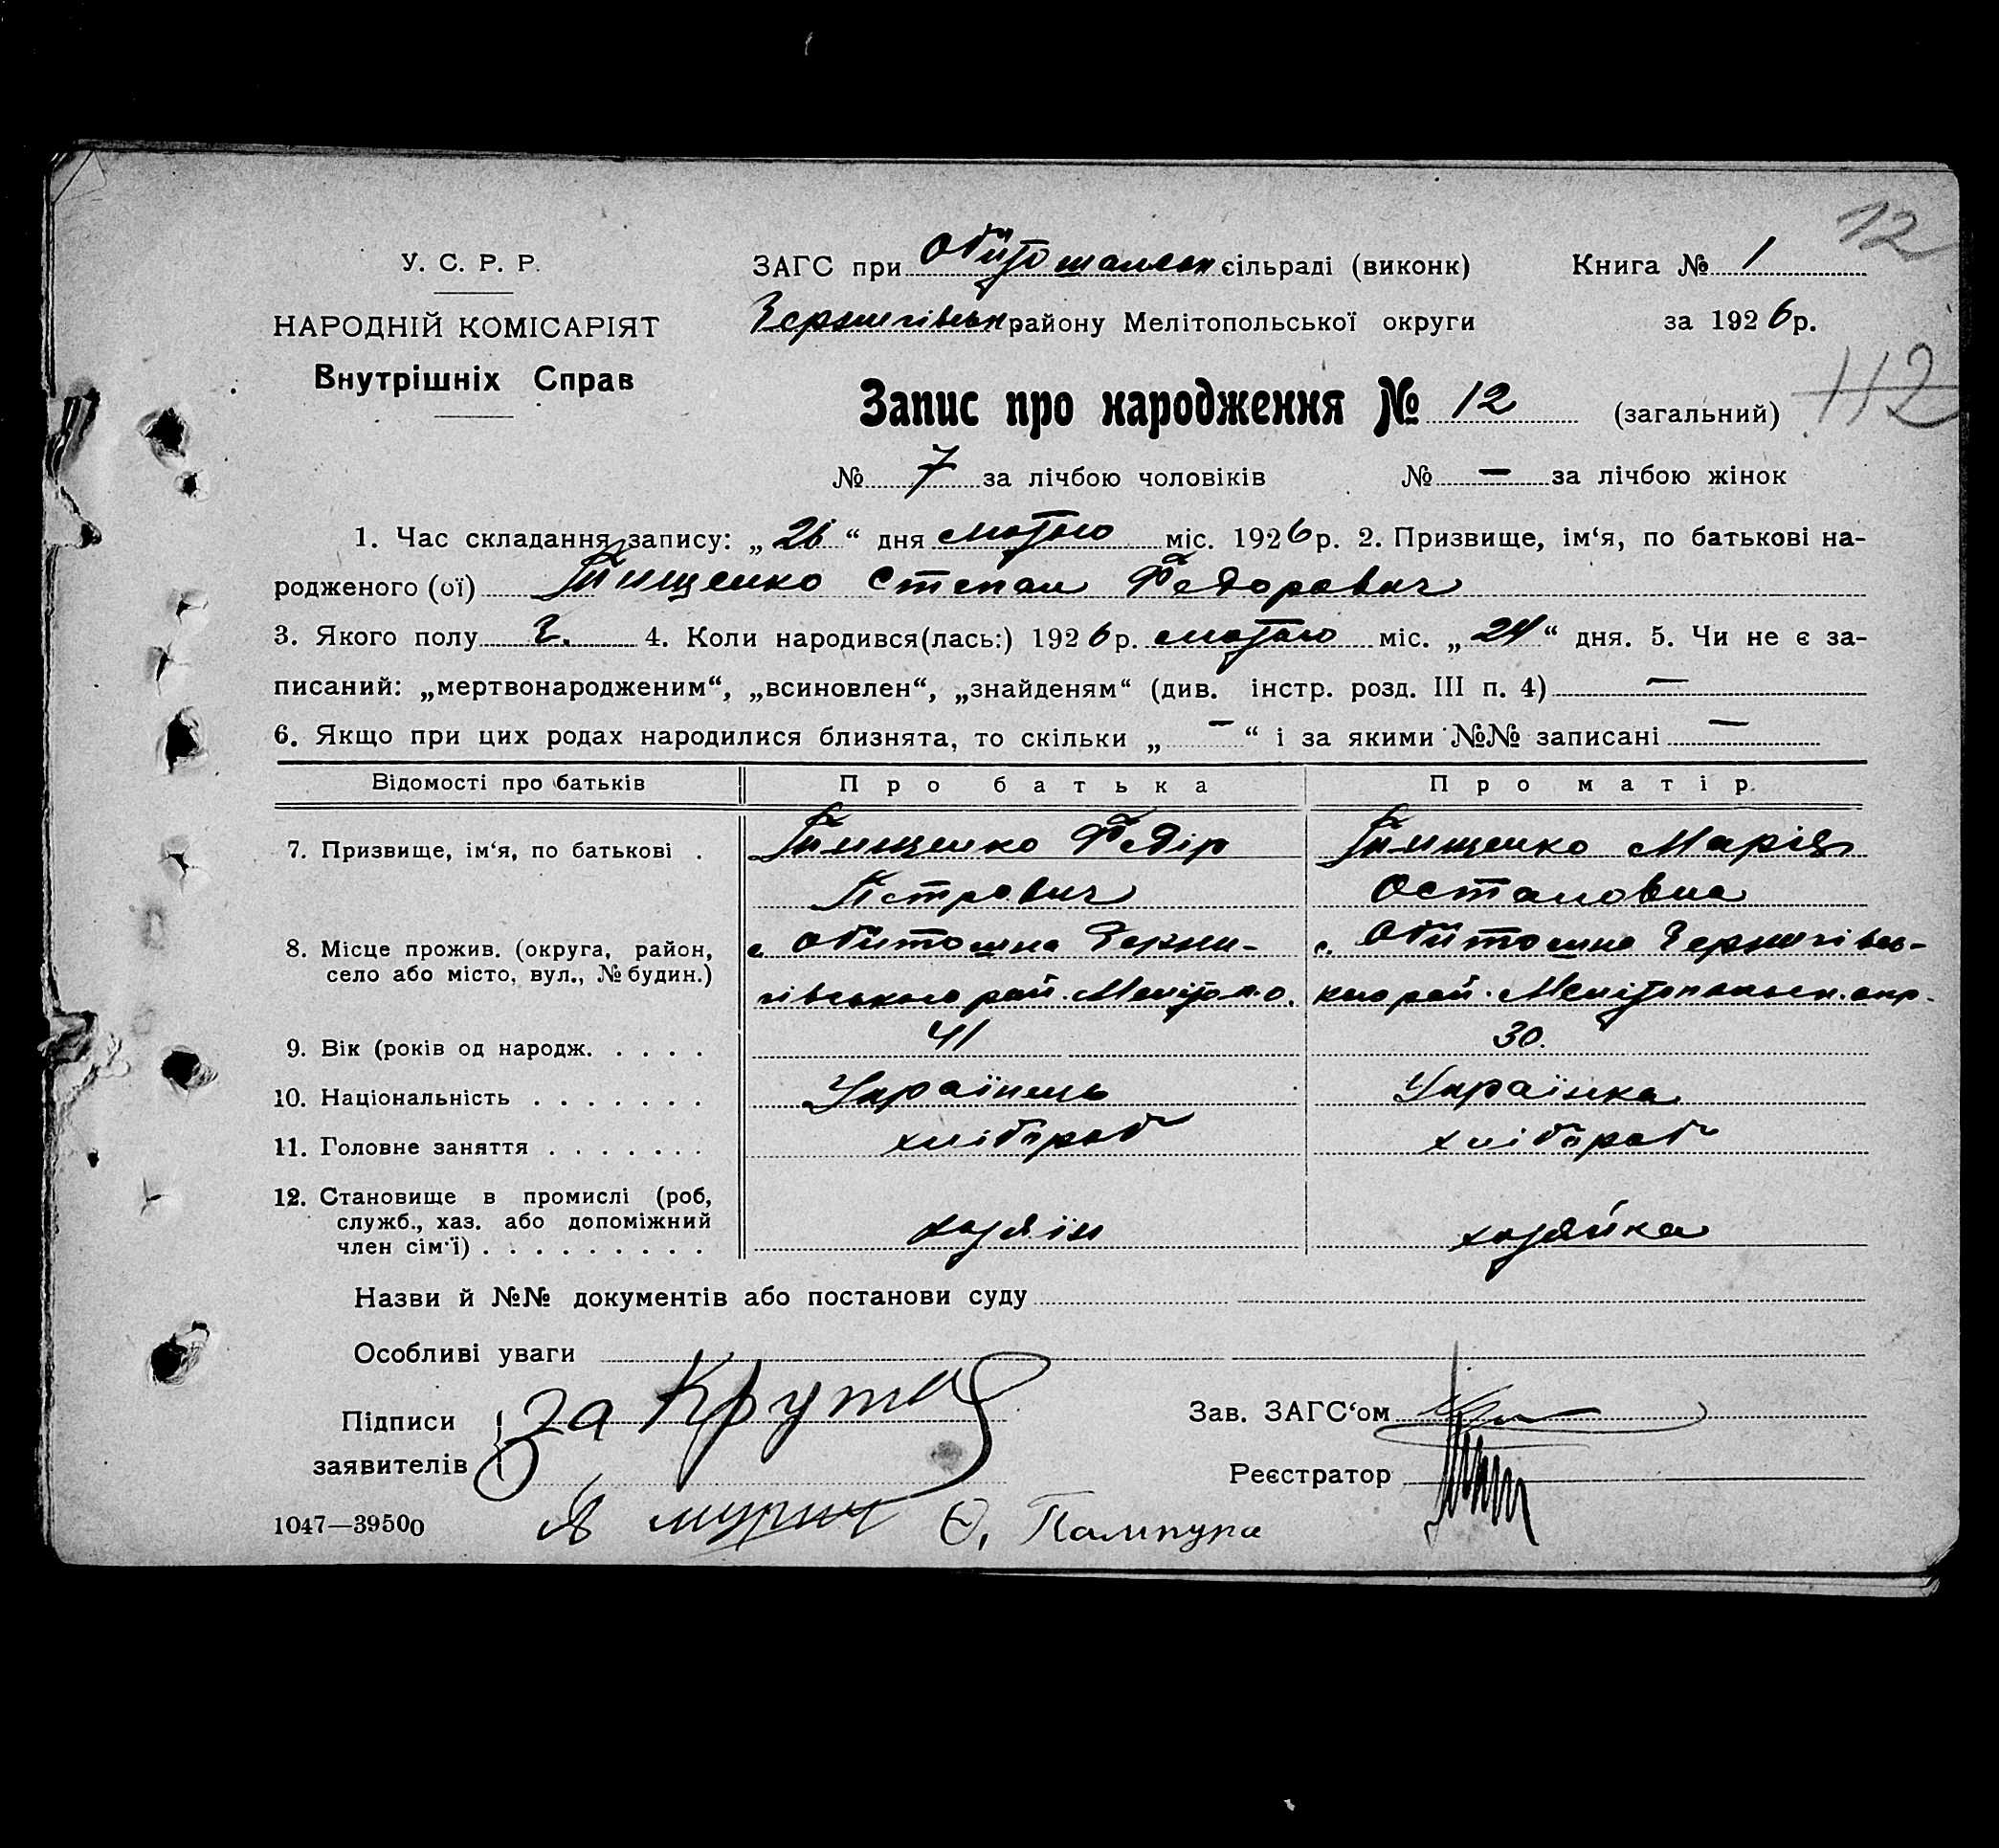 12
У. С. Р. Р.
НАРОДНІЙ КОМІСАРІЯТ
Внутрішніх Справ
ЗАГС при Обитошанськ сільраді (виконк)
Книга № 1
Чернигівськ. району Мелітопольської округи
за 1926 р.
112
Запис про народження № 12 (загальний)
№ 7 за лічбою чоловіків № — за лічбою жінок
1. Час складання запису: „26“ дня лютого міс. 1926 р. 2. Призвище, ім‘я, по батькові на-
родженого (ої) Тищенко Степан Федорович
3. Якого полу Ч. 4. Коли народився(лась:) 1926 р. лютого міс. „24“ дня. 5. Чи не є за-
писаний: „мертвонародженим“, „всиновлен“, „знайденям“ (див. інстр. розд. III п. 4) —
6. Якщо при цих родах народилися близнята, то скільки „ — “ і за якими №№ записані —
Відомості про батьків Про батька Про матір.
7. Призвище, ім‘я, по батькові . Тищенко Федір Тищенко Марія
Петрович Остаповна
8. Місце прожив. (округа, район, с. Обитошна Черни- с. Обитошна Чернигівсь-
село або місто, вул., № будин.) гівського рай. Меліто п.о. кого рай. Мелітопольськ. окр.
9. Вік (років од народж. . . . . 41 30.
10. Національність . . . . . . . Українець Українка
11. Головне заняття . . . . . . . хлібороб хлібороб
12. Становище в промислі (роб,
служб., хаз. або допоміжний
член сім‘ї) . . . . . . . . . хозяїн хозяйка
Назви й №№ документів або постанови суду
Особливі уваги
Підписи за
Зав. ЗАГС‘ом
заявителів
Реєстратор
1047—39500 Ѳ. Пампура